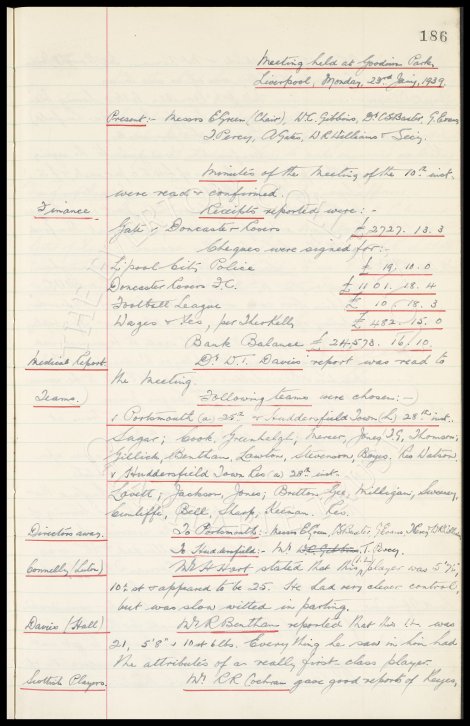 186
Meeting held at Goodison Park,
Liverpool, Monday, 23rd Jany, 1939.
Present:- Messrs E. Green, (Chair), W.C. Gibbins, Dr C.S. Baxter, G. Evans
T. Percy, A. Gates, W.R. Williams & Secy.
Minutes of the meeting of the 10th inst.
were read & confirmed.
Finance
Receipts reported were:-
Gate v Doncaster Rovers £2727. 13. 3
Cheques were signed for:-
L'pool City Police £ 19. 10. 0
Doncaster Rovers F.C. £1101. 18. 4
Football League £ 10. 18. 3
Wages & fees, per Theo Kelly £ 482. 15. 0
Bank Balance £24,573. 16. 10
Medical Report
Dr W.T. Davies' report was read to
the meeting.
Teams.
Following teams were chosen:-
v Portsmouth (a) 25th & Huddersfield Town (h) 28th inst.
Sagar; Cook, Greenhalgh; Mercer, Jones T.G, Thomson;
Gillick, Bentham, Lawton, Stevenson, Boyes. Res Watson
v Huddersfield Town Res (a) 28th inst.
Lovett; Jackson, Jones; Britton, Gee, Milligan, Sweeney,
Cunliffe, Bell, Sharp, Keenan. Res.
Directors away.
To Portsmouth:- Messrs E. Green,
To Huddersfield:- Mr W.C. Gibbins, T. Percy.
Connelly (Luton)
Mr H Hart stated that this player was
10st & appeared to be 25. He had very clever control,
but was slow witted in parting.
Davies (Hall)
Mr R Bentham reported that this I.F. was
21, 5'8" & 10st 6lbs. Everything he saw in him had
the attributes of a really first class player.
Scottish Players.
Mr R.R Cochran gave good reports of Keyes,